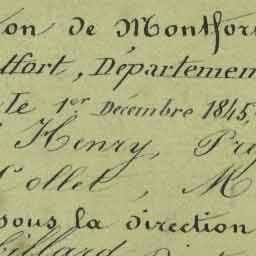 ion de Montfor
tfort, Départemen
te 1er Décembre 1845,
Henry, Pré
Collet, M
sous la direction
billard